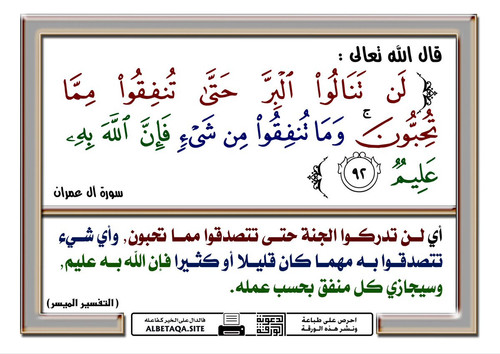 قال الله تعالى :
﴿ لَن تَنَالُوا۟ ٱلْبِرَّ حَتَّىٰ تُنفِقُوا۟ مِمَّا
تُحِبُّونَ ۚ وَمَا تُنفِقُوا۟ مِن شَىْءٍ فَإِنَّ ٱللَّهَ بِهِۦ
عَلِيمٌ ٩٢ ﴾
سورة آل عمران
أي لـن تدركـوا الجنة حتـى تتصدقوا ممـا تحبون, وأي شـيء
تتصدقـوا بـه مهمـا كان قليـلا أو كثيـرا فإن الله به عليم,
وسيجازي كل منفق بحسب عمله.
(التفسير الميسر)
احرص على طباعة
ونشر هذه الورقة
الدعوية
الورقة
فالدال على الخير كفاعله
ALBETAQA.SITE